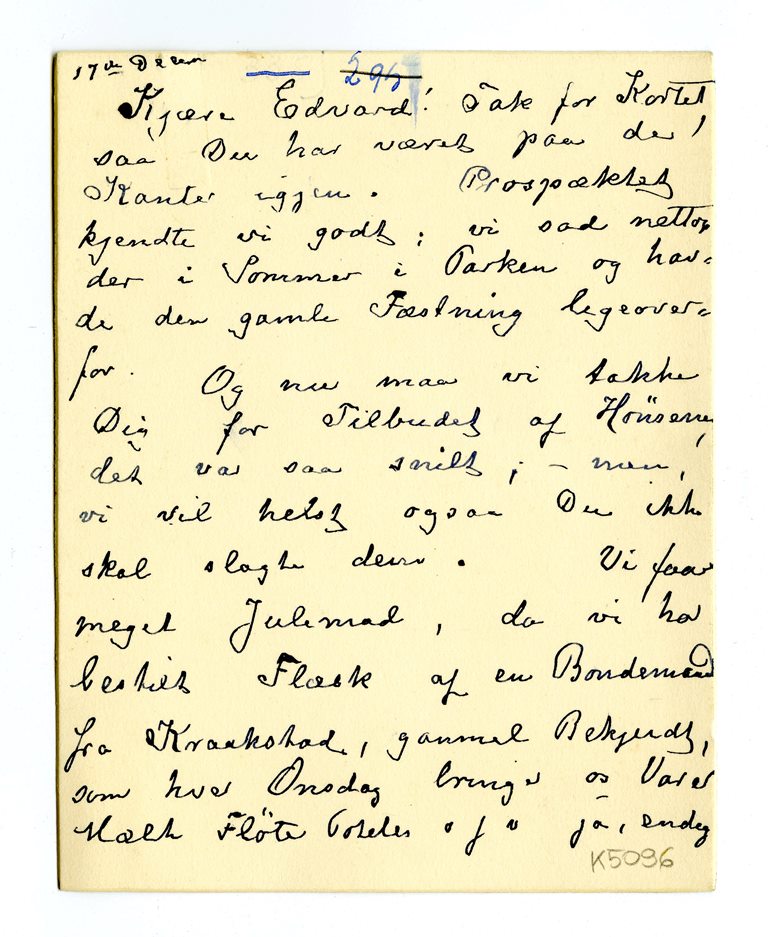 17de Decem
293
Kjære Edvard! Tak for Kortet
saa Du har været paa de
Kanter igjen. Prospæktet
kjendte vi godt; vi sad nettop
der i Sommer i Parken og hav-
de den gamle Fæstning ligeover-
for. Og nu maa vi takke
Dig for Tilbudet af Hönsene
det var saa snilt; – men,
vi vil helst ogsaa Du ikke
skal slagte dem. Vi faar
meget Julemad, da vi ha
bestilt Flæsk af en Bondemand
fra Kraakstad, gammel Bekjendt,
som hver Onsdag bringer os Varer
Mælk Flöte Poteter o s v ja, endog
K5096